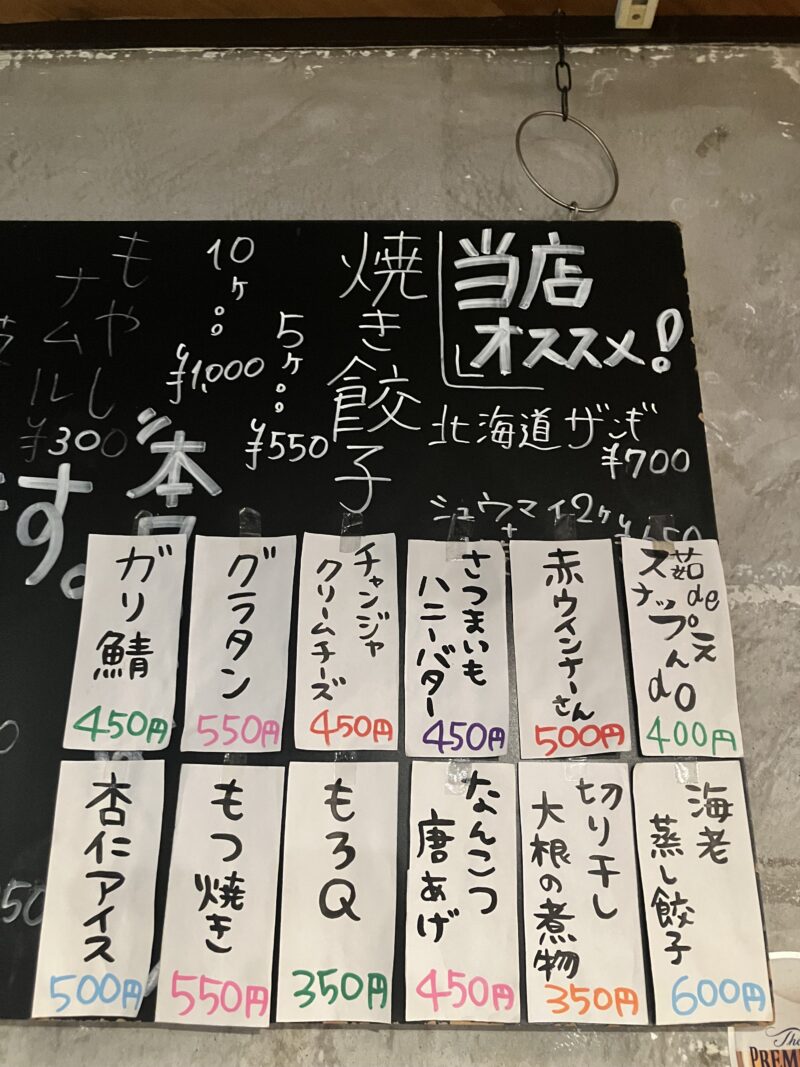 当店
オススメ!
北海道ザンギ
¥700
シュウマイ2ヶ
焼き餃子
5ヶ。。
¥550
10ヶ。。
¥1,000
もやし
ナムル
¥300
本日
す。
茹de
スナップえんdo
400円
赤ウインナーさん
500円
さつまいも
ハニーバター
450円
チャンジャ
クリームチーズ
450円
グラタン
550円
ガリ鯖
450円
海老
蒸し餃子
600円
切り干し
大根の煮物
350円
なんこつ
唐あげ
450円
もろQ
350円
もつ焼き
550円
杏仁アイス
500円
The
PREM